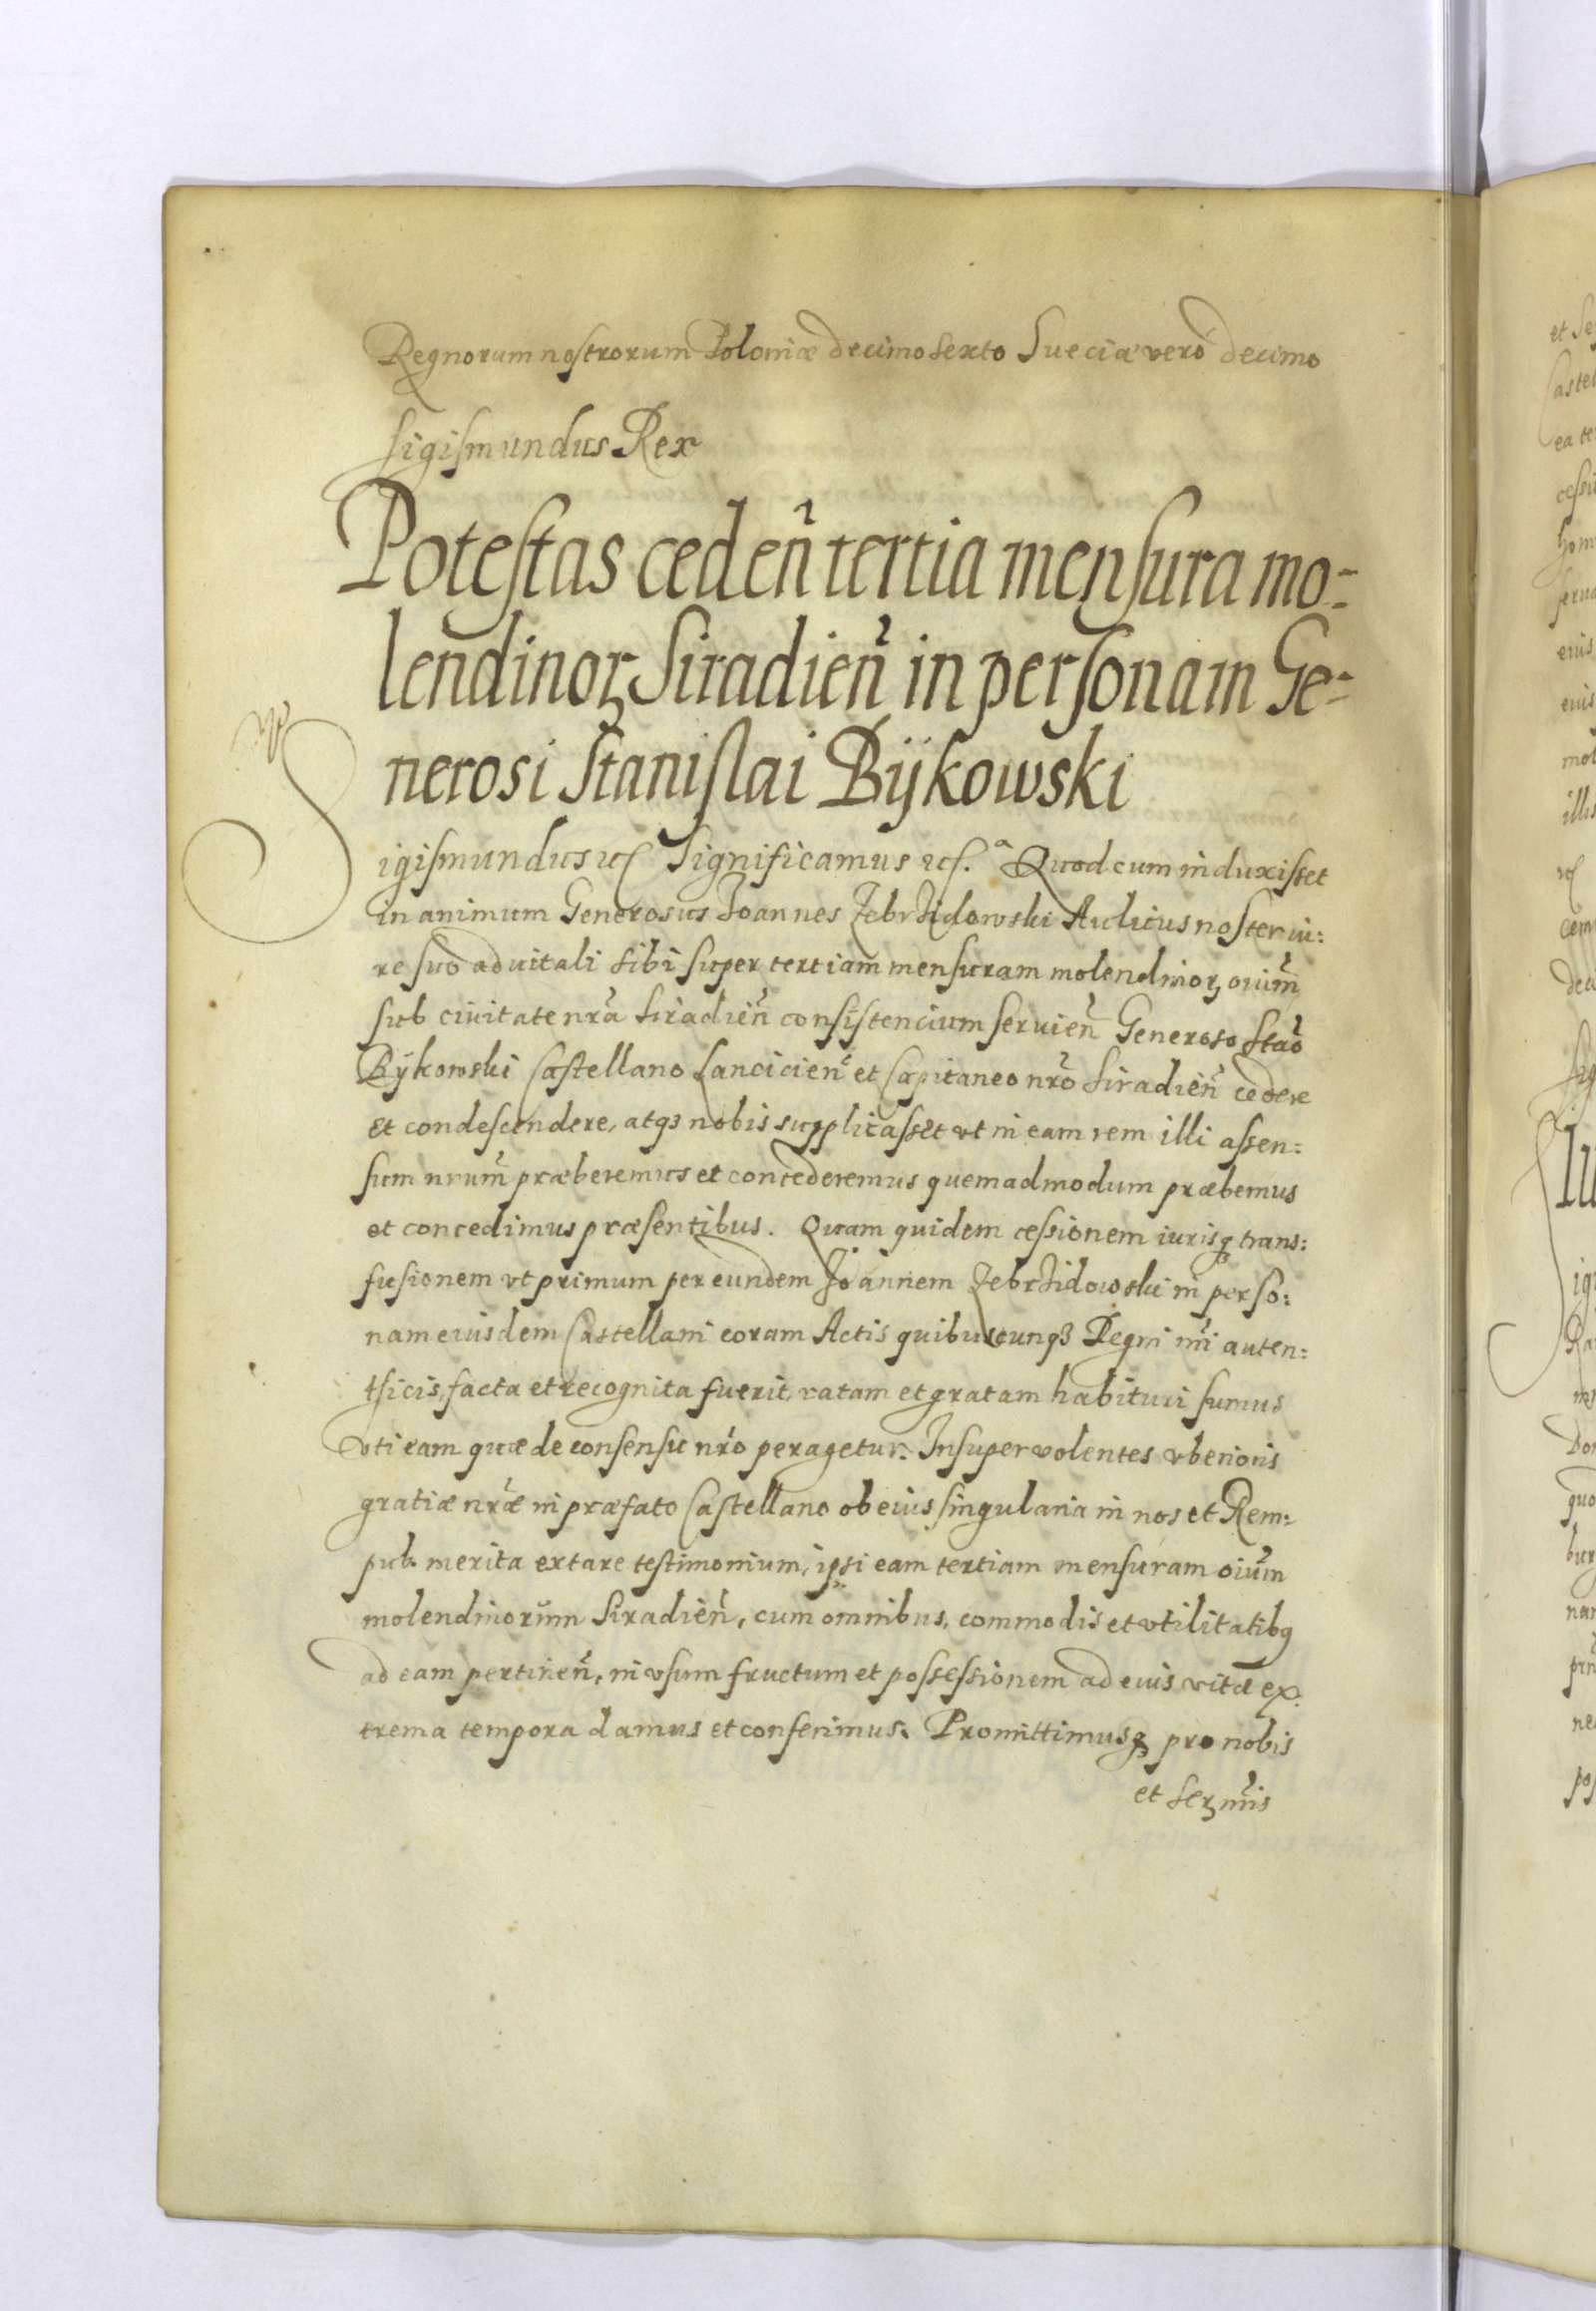 Regnorum nostrorum Poloniæ decimo sexto Sueciæ verò decimo
Sigismundus Rex
Potestas cedeñ tertia mensura mo:
lendinoꝝ Siradieñ in personam Ge:
nerosi Stanislai Bÿkowski
Sigismundus etc Significamus etc. Quod cum induxisset
in animum Generosus Joannes Zebrzidowski Aulicus noster iu:
re suo aduitali sibi super tertiam mensuram molendinoꝝ oium̃
sub ciuitate nr̃a Siradieñ consistencium seruieñ Generoso Stao
Bÿkowski Castellano Lancicieñ et Capitaneo nr̃o Siradieñ cedere
et condescendere, atqꝫ nobis supplicasset vt in eam rem illi assen:
sum nrum̃ præberemus et concederemus quemadmodum præbemus
et concedimus præsentibus. Quam quidem cessionem iurisqꝫ trans:
fusionem vt primum per eundem Joannem Zebrzidowski in perso:
nam eiusdem Castellani coram Actis quibuscunqꝫ Regni nr̃i auten:
tsicis, facta et recognita fuerit, ratam et gratam habituri sumus
vti eam quæ de consensu nr̃o peragetur. Insuper volentes vberioris
gratiæ nr̃æ in præfato Castellano ob eius singularia in nos et Rem:
pub. merita extare testimonium, ipsi eam tertiam mensuram oium̃
molendinorum Siradieñ, cum omnibus, commodis et vtilitatibꝫ
ad eam pertineñ, in vsum fructum et possessionem ad eius vitæ ex:
trema tempora damus et conferimus. Promittimusqꝫ pro nobis
et Serm̃is